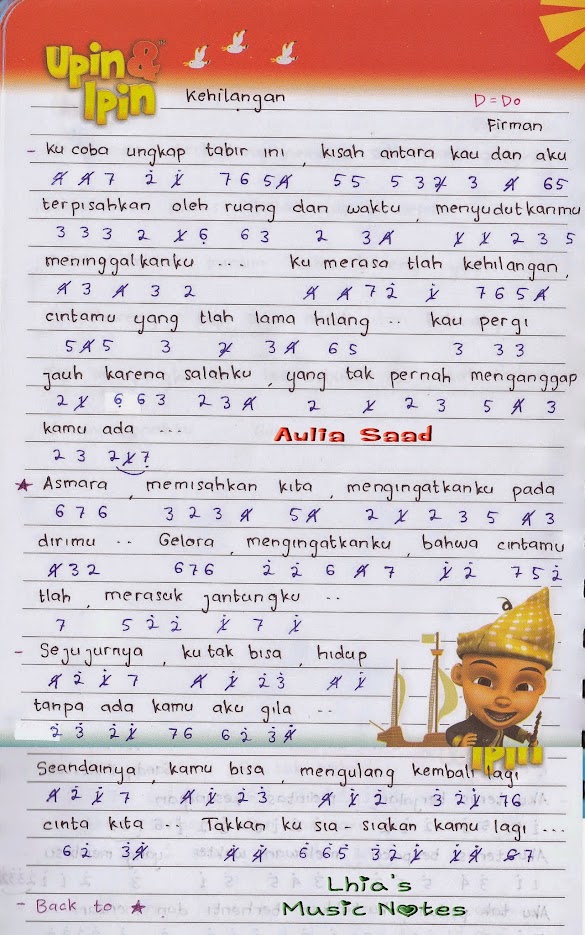 Upin & Ipin
Kehilangan
D = Do
Firman
- Ku coba ungkap tabir ini , kisah antara kau dan aku
4 4 7 2 1 7 6 5 4 5 5 5 3 2 3 4 6 5
terpisahkan oleh ruang dan waktu , menyudutkanmu
3 3 3 2 1 6 6 3 2 3 4 1 1 2 3 5
meninggalkanku .... Ku merasa tlah kehilangan,
4 3 4 3 2 4 4 7 2 1 7 6 5 4
cintamu yang tlah lama hilang .. kau pergi
5 4 5 3 2 3 4 6 5 3 3 3
jauh karena salahku , yang tak pernah menganggap
2 1 6 6 3 2 3 4 2 1 2 3 5 4 3
kamu ada ....
Aulia Saad
2 3 2 1 7
★ Asmara , memisahkan kita , mengingatkanku pada
6 7 6 3 2 3 4 5 4 2 1 2 3 5 4 3
dirimu .. Gelora , mengingatkanku , bahwa cintamu
4 3 2 6 7 6 2 2 6 4 7 1 2 7 5 2
tlah , merasuk jantungku ..
7 5 2 2 1 7 1
- Sejujurnya , ku tak bisa , hidup
4 2 1 7 4 1 2 3 4 1
tanpa ada kamu aku gila ..
2 3 2 1 7 6 6 2 3 4
Ipin
Seandainya kamu bisa , mengulang kembali lagi
4 2 1 7 4 1 2 3 4 1 2 3 2 1 7 6
cinta kita ... Takkan ku sia - siakan kamu lagi ...
6 2 3 4 4 4 6 6 5 3 2 1 1 4 6 7
- Back to ★
Lhia's
Music Notes